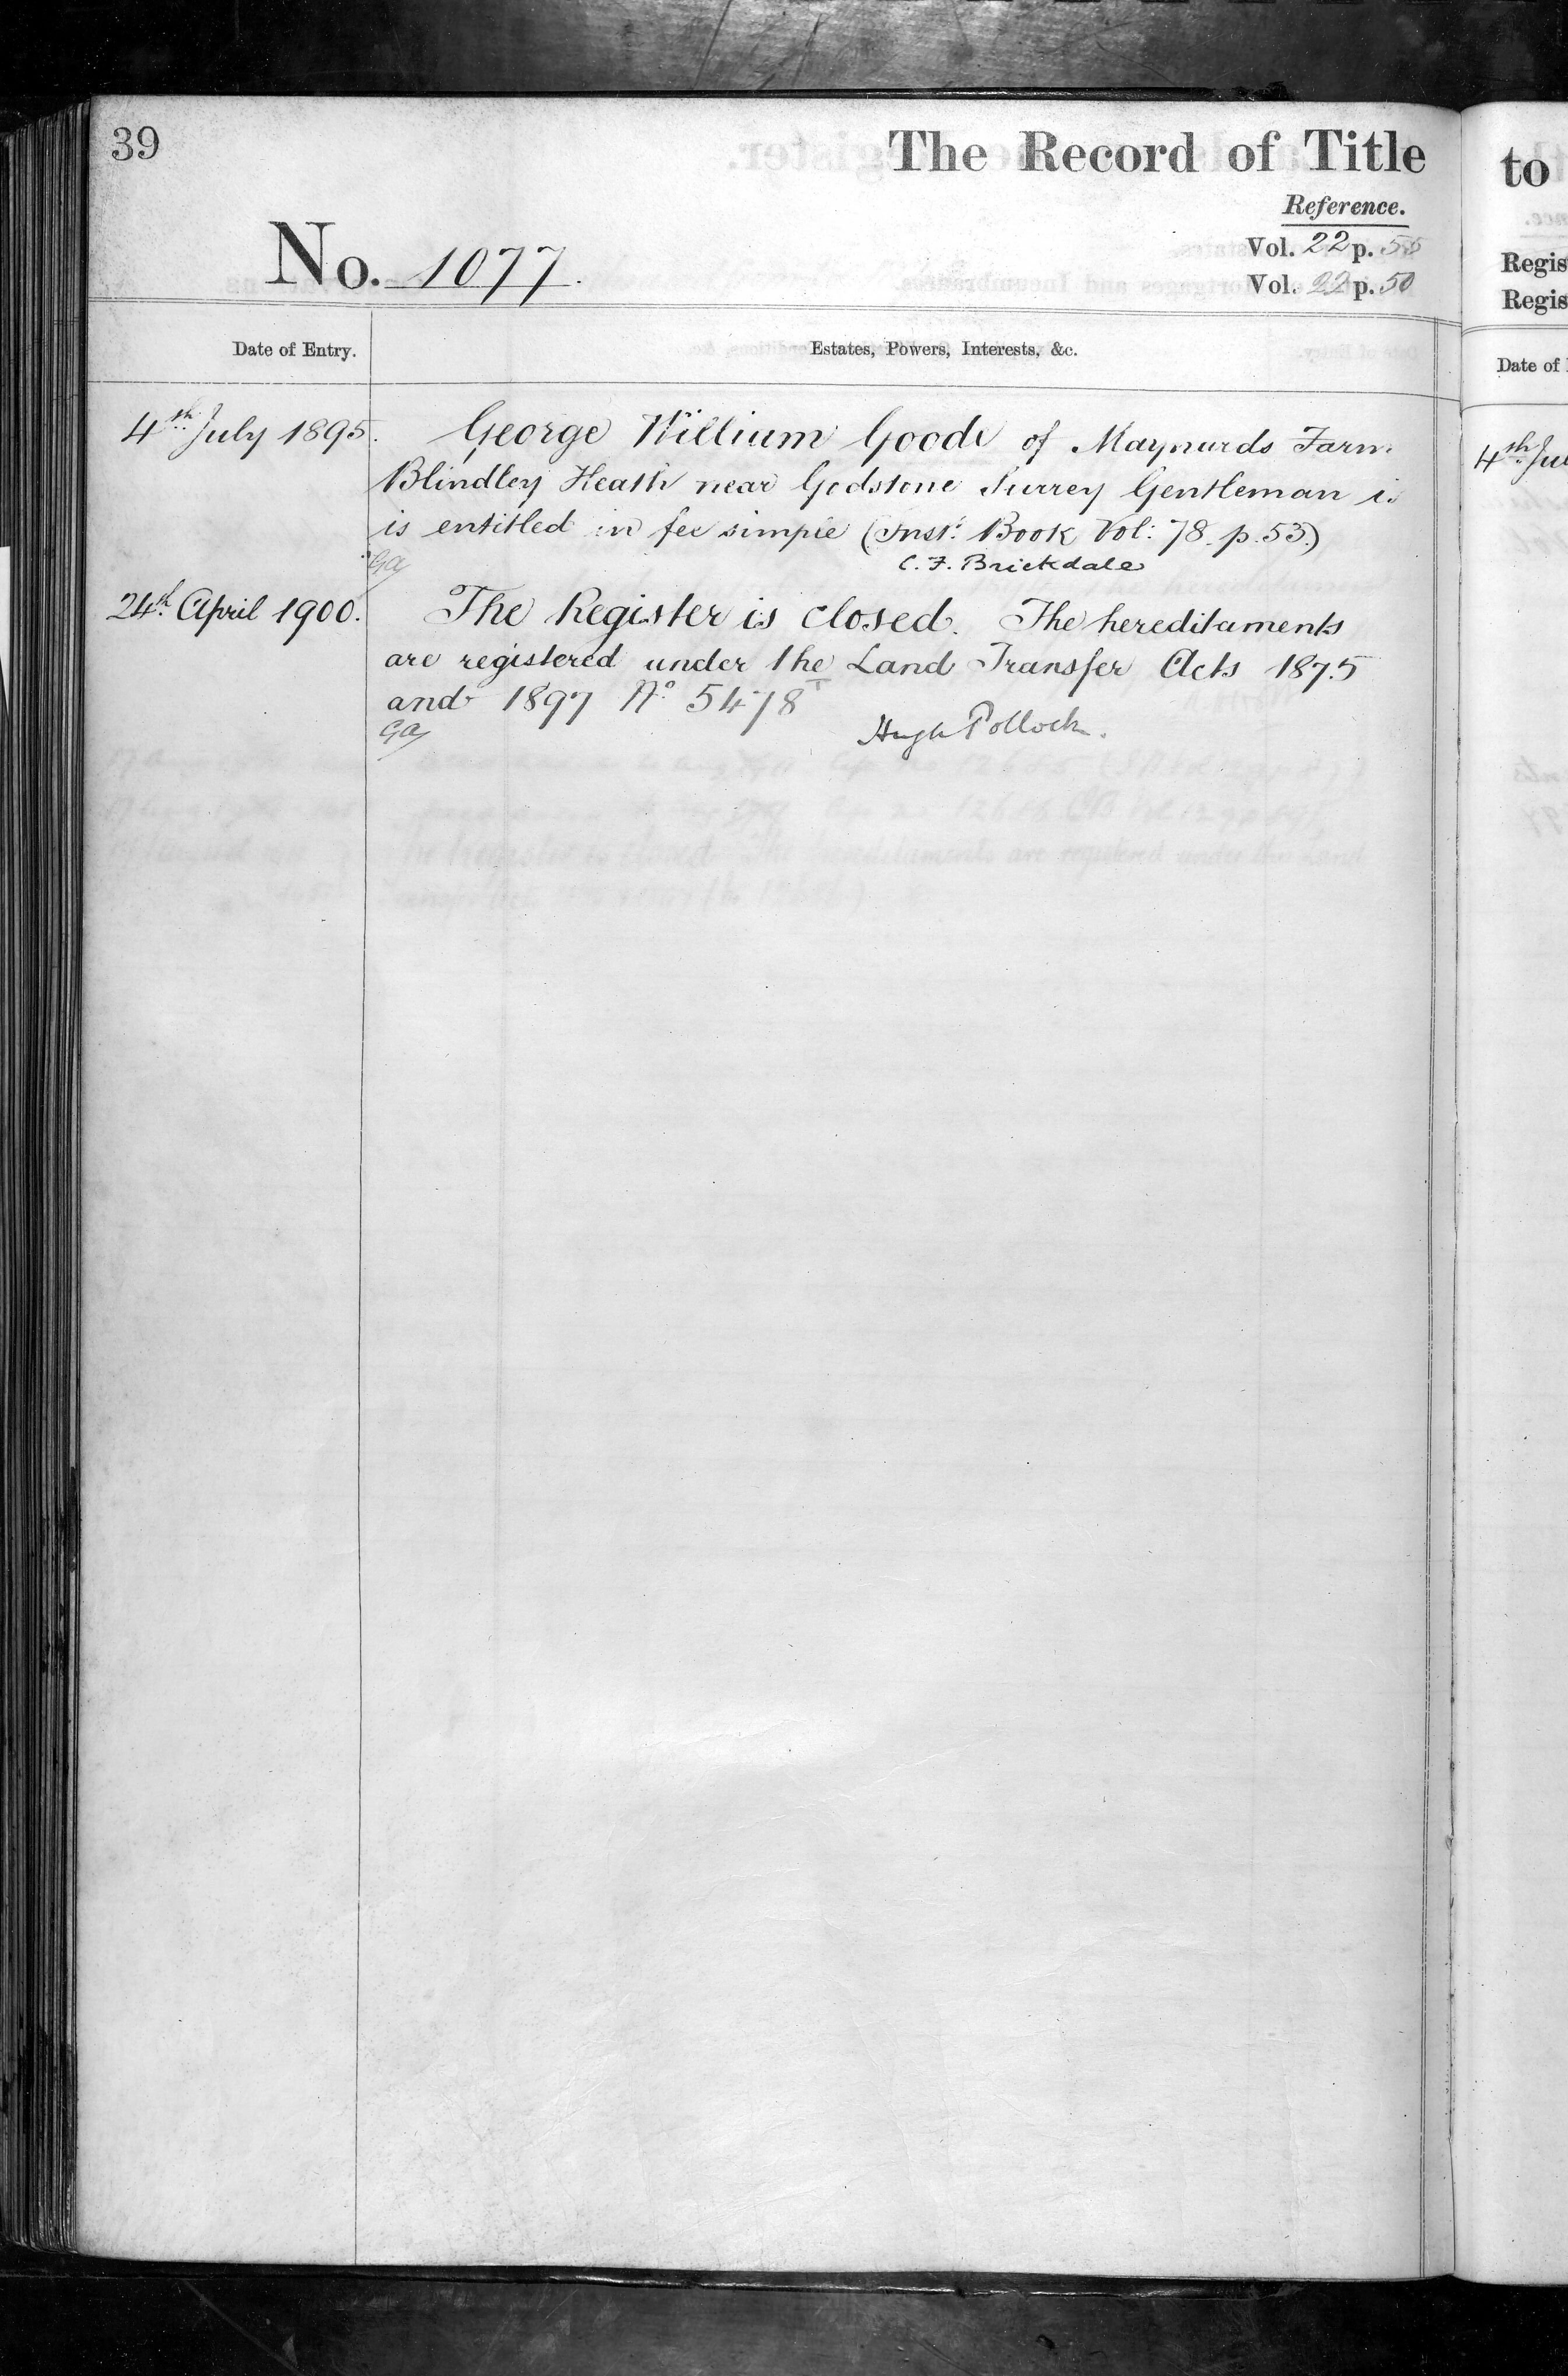 39
The Record of Title
Reference.
No. 1077.
Vol. 22 p.
Vol. 22 p. 50
Date of Entry.
Estates, Powers, Interests, &c.
4th July 1895.
George William Goode of Maynards Farm
Blindley Heath near Godstone Surrey Gentleman is
is entitled in fee simple (Inst: Book Vol: 78. p. 53.)
C. F. Brickdale
GA
24th April 1900.
The Register is closed. The hereditaments
are registered under the Land Transfer Acts 1875
and 1897 No 5478
GA
Hugh Pollock.
to
Regis
Regis
Date of
4th Ju